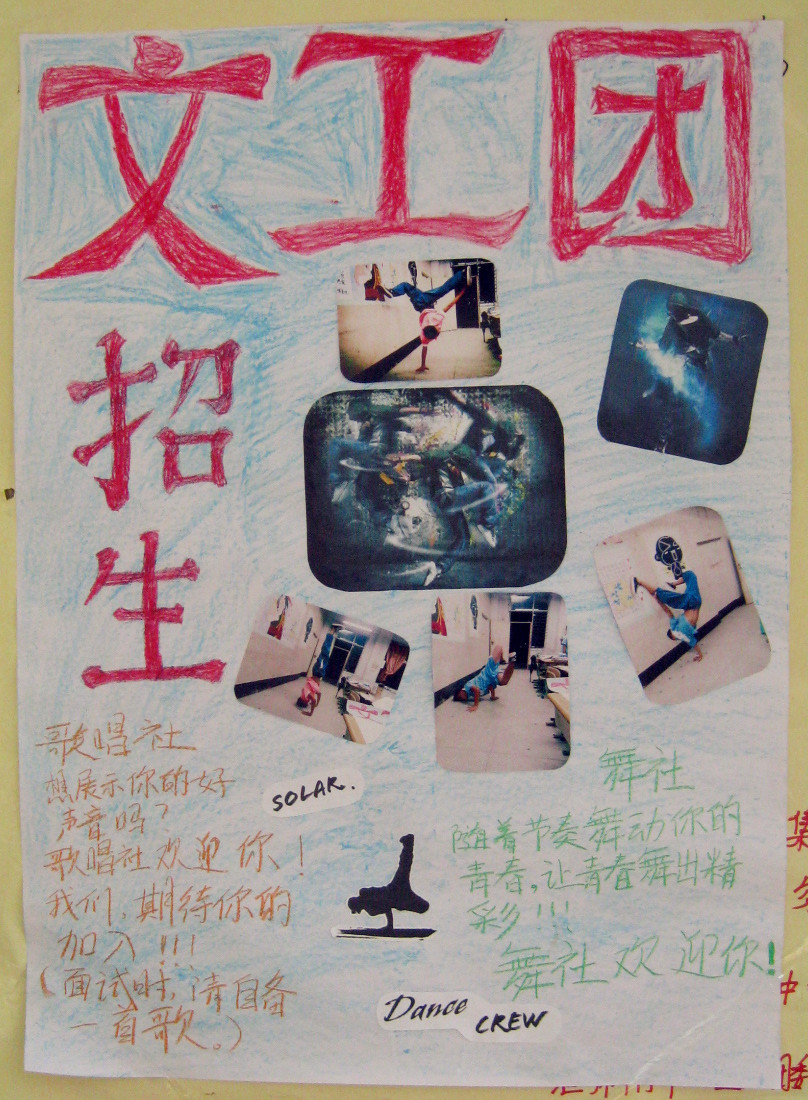 文工团
招
生
歌唱社
想展示你的好
声音吗？
歌唱社欢迎你！
我们，期待你的
加入！！！
（面试时，请自备
一首歌。）
SOLAR.
舞社
随着节奏舞动你的
青春，让青春舞出精
彩！！！
舞社欢迎你！
Dance
CREW
集